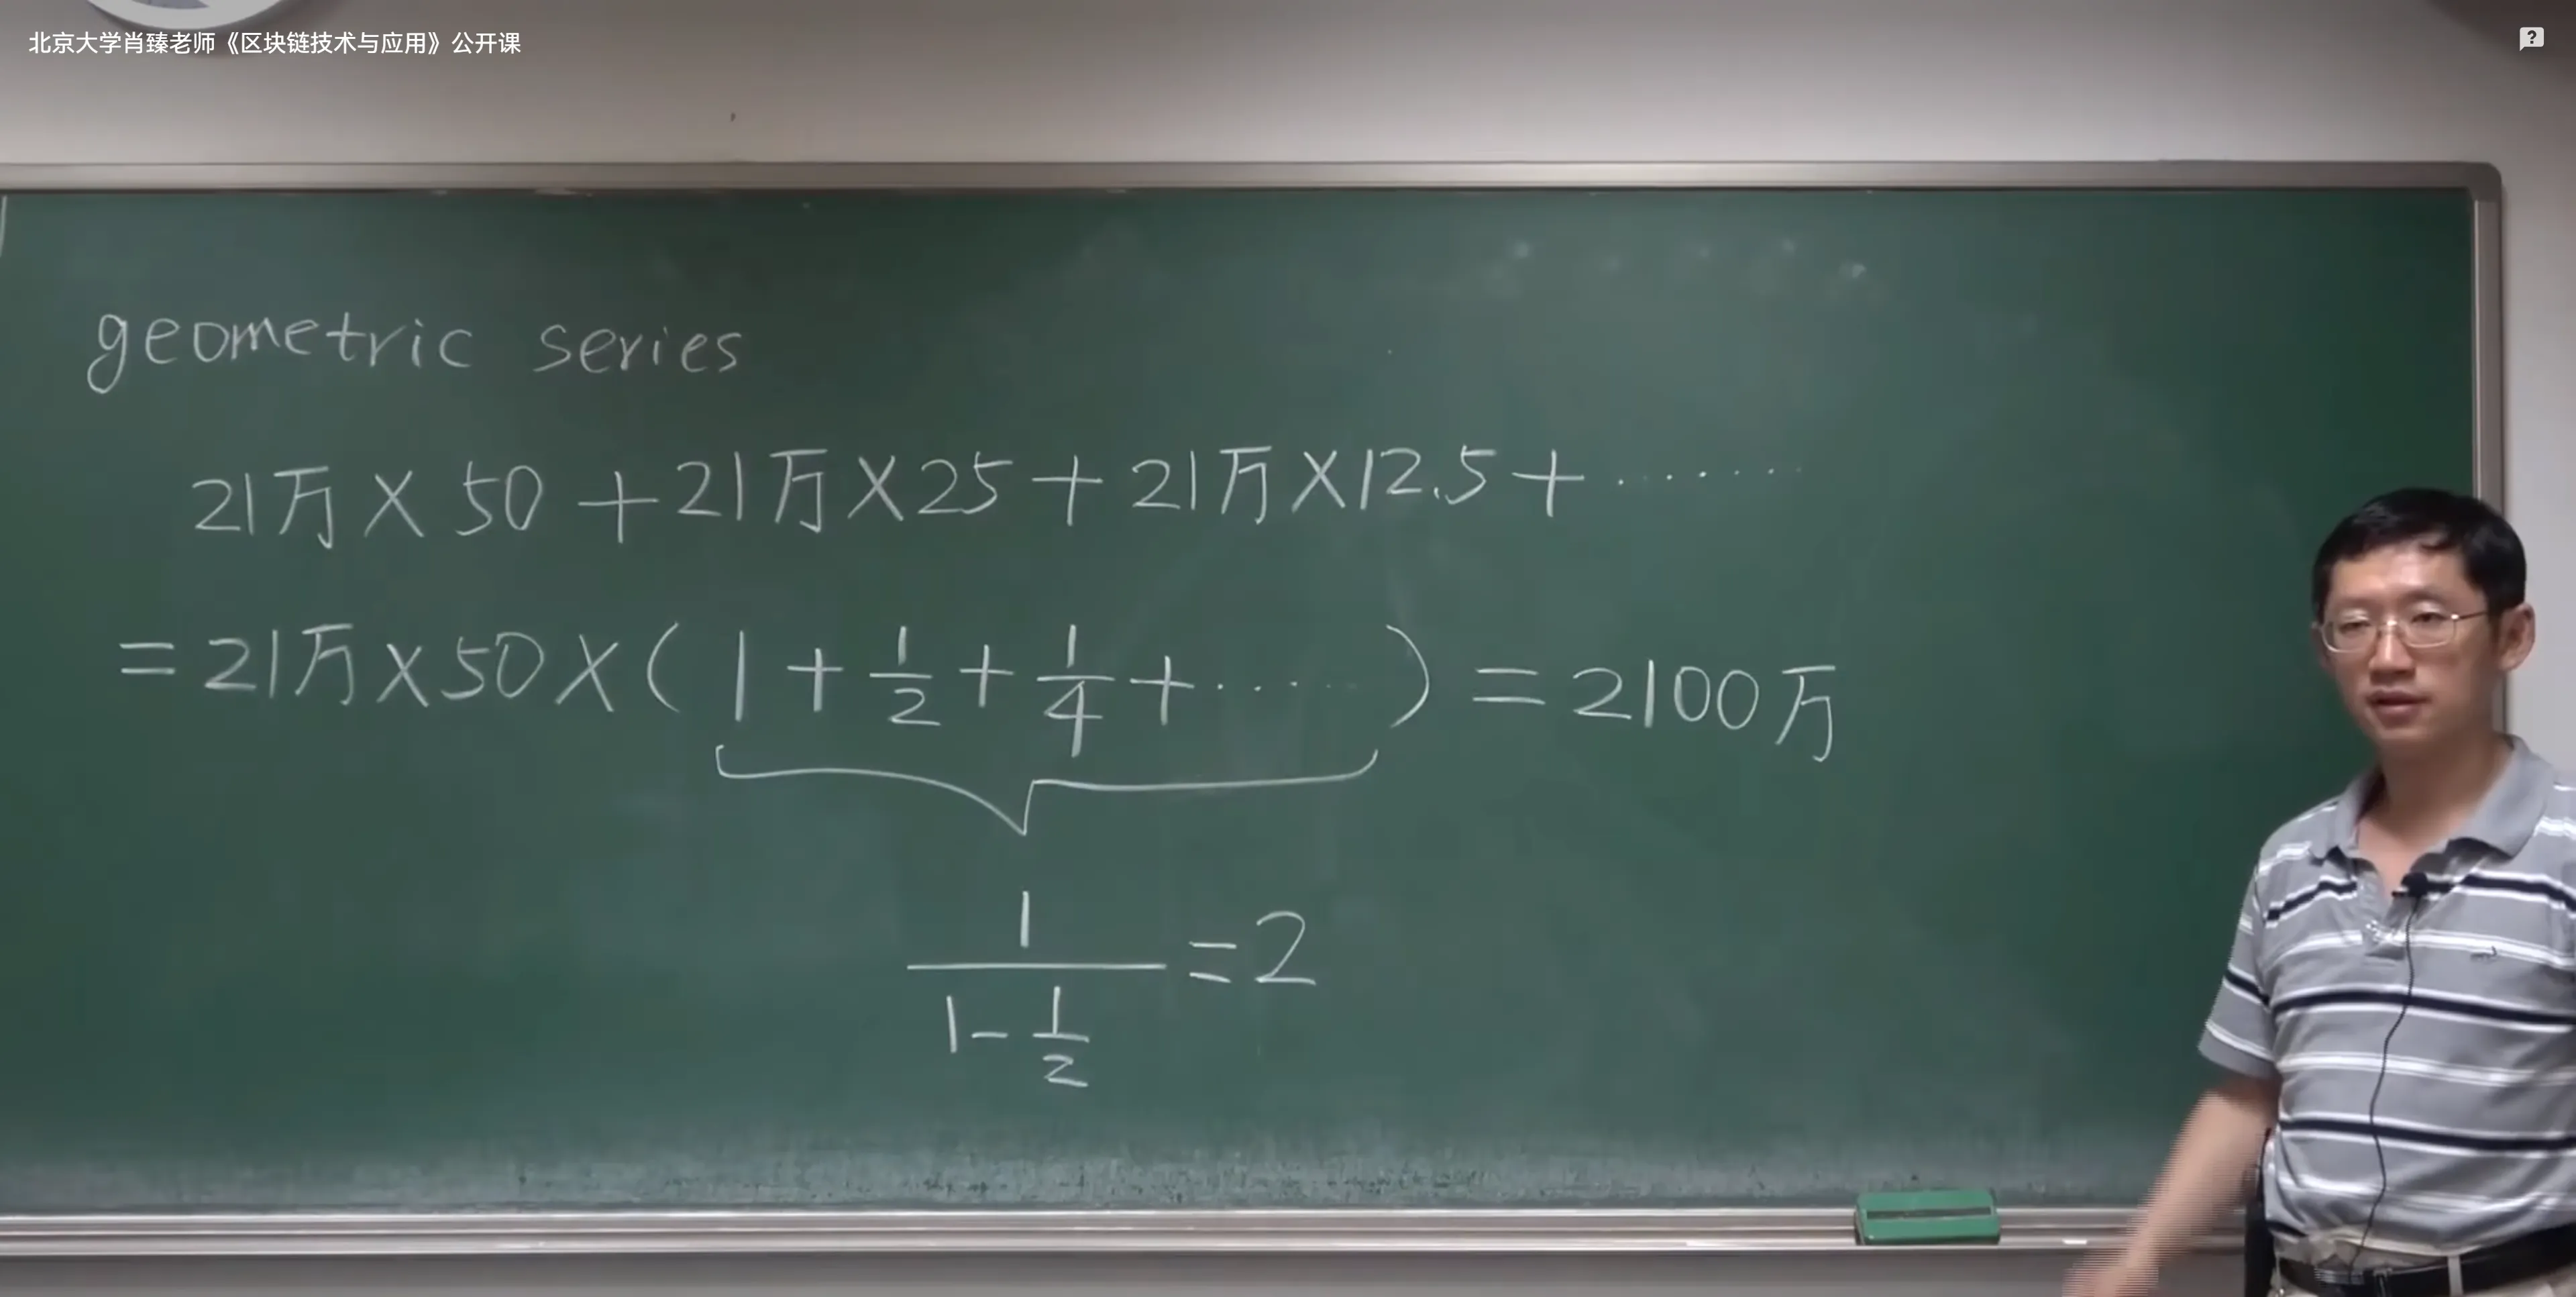 北京大学肖臻老师《区块链技术与应用》公开课
geometric series
21万×50+21万×25+21万×12.5+·······
=21万×50×(1+1/2+1/4+·····)=2100万
1/(1-1/2)=2